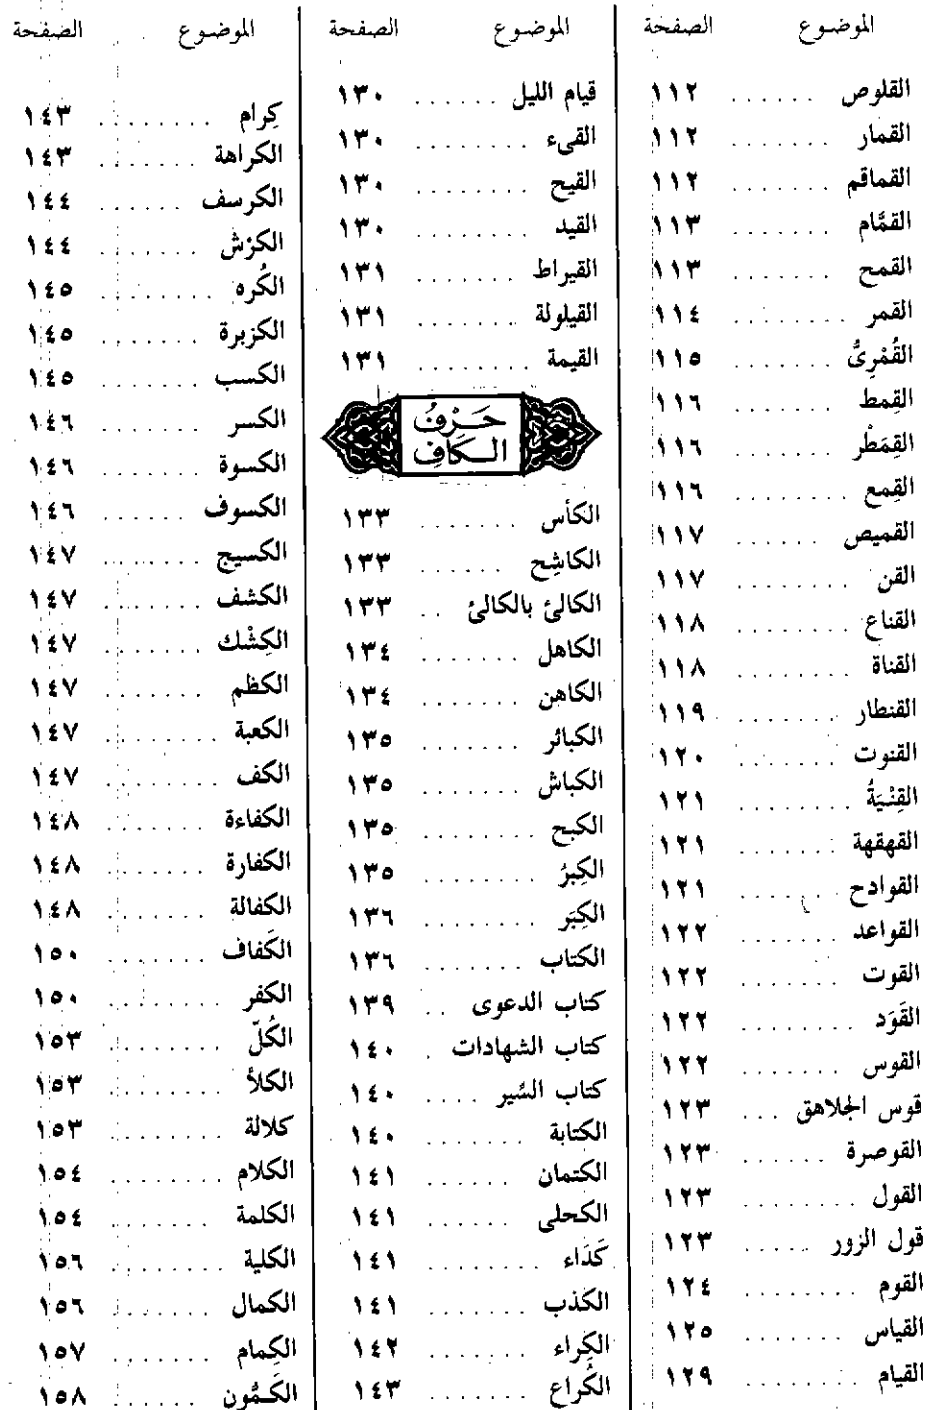 الموضوع الصفحة
القلوص ...... ١١٢
القمار ....... ١١٢
القماقم ....... ١١٢
القمَّام ........ ١١٣
القمح ........ ١١٣
القمر ........ ١١٤
القُمْرِىُّ ....... ١١٥
القِمط ........ ١١٦
القِمَطْر ....... ١١٦
القِمع ........ ١١٦
القميص ....... ١١٧
القن ......... ١١٧
القناع ........ ١١٨
القناة ........ ١١٨
القنطار ....... ١١٩
القنوت ....... ١٢٠
القِنْيَةُ ........ ١٢١
القهقهة ....... ١٢١
القوادح ...... ١٢١
القواعد ....... ١٢٢
القوت ....... ١٢٢
القَوَد ........ ١٢٢
القوس ....... ١٢٢
قوس الجلاهق ... ١٢٣
القوصرة ...... ١٢٣
القول ........ ١٢٣
قول الزور ..... ١٢٣
القوم ........ ١٢٤
القياس ....... ١٢٥
القيام ........ ١٢٩
الموضوع الصفحة
قيام الليل ...... ١٣٠
القىء ........ ١٣٠
القيح ........ ١٣٠
القيد ........ ١٣٠
القيراط ....... ١٣١
القيلولة ....... ١٣١
القيمة ........ ١٣١
حَرْفُ
الكَافِ
الكأس ....... ١٣٣
الكاشِح ...... ١٣٣
الكالئ بالكالئ .. ١٣٣
الكاهل ....... ١٣٤
الكاهن ....... ١٣٤
الكبائر ....... ١٣٥
الكباش ....... ١٣٥
الكبح ........ ١٣٥
الكِبرُ ........ ١٣٥
الكِبَر ........ ١٣٦
الكتاب ....... ١٣٦
كتاب الدعوى .. ١٣٩
كتاب الشهادات . ١٤٠
كتاب السِّير .... ١٤٠
الكتابة ....... ١٤٠
الكتمان ...... ١٤١
الكحلى ....... ١٤١
كَدَاء ........ ١٤١
الكذب ....... ١٤١
الكِراء ....... ١٤٢
الكُراع ....... ١٤٣
الموضوع الصفحة
كِرام ........ ١٤٣
الكراهة ....... ١٤٣
الكرسف ...... ١٤٤
الكرْش ....... ١٤٤
الكُره ........ ١٤٥
الكزبرة ....... ١٤٥
الكسب ....... ١٤٥
الكسر ....... ١٤٦
الكسوة ....... ١٤٦
الكسوف ...... ١٤٦
الكسيج ....... ١٤٧
الكشف ....... ١٤٧
الكِشْك ....... ١٤٧
الكظم ....... ١٤٧
الكعبة ....... ١٤٧
الكف ........ ١٤٧
الكفاءة ....... ١٤٨
الكفارة ....... ١٤٨
الكفالة ....... ١٤٨
الكَفاف ....... ١٥٠
الكفر ........ ١٥٠
الكُلّ ........ ١٥٣
الكلأ ........ ١٥٣
كلالة ........ ١٥٣
الكلام ........ ١٥٤
الكلمة ....... ١٥٤
الكلية ........ ١٥٦
الكمال ....... ١٥٦
الكِمام ....... ١٥٧
الكَمُّون ...... ١٥٨